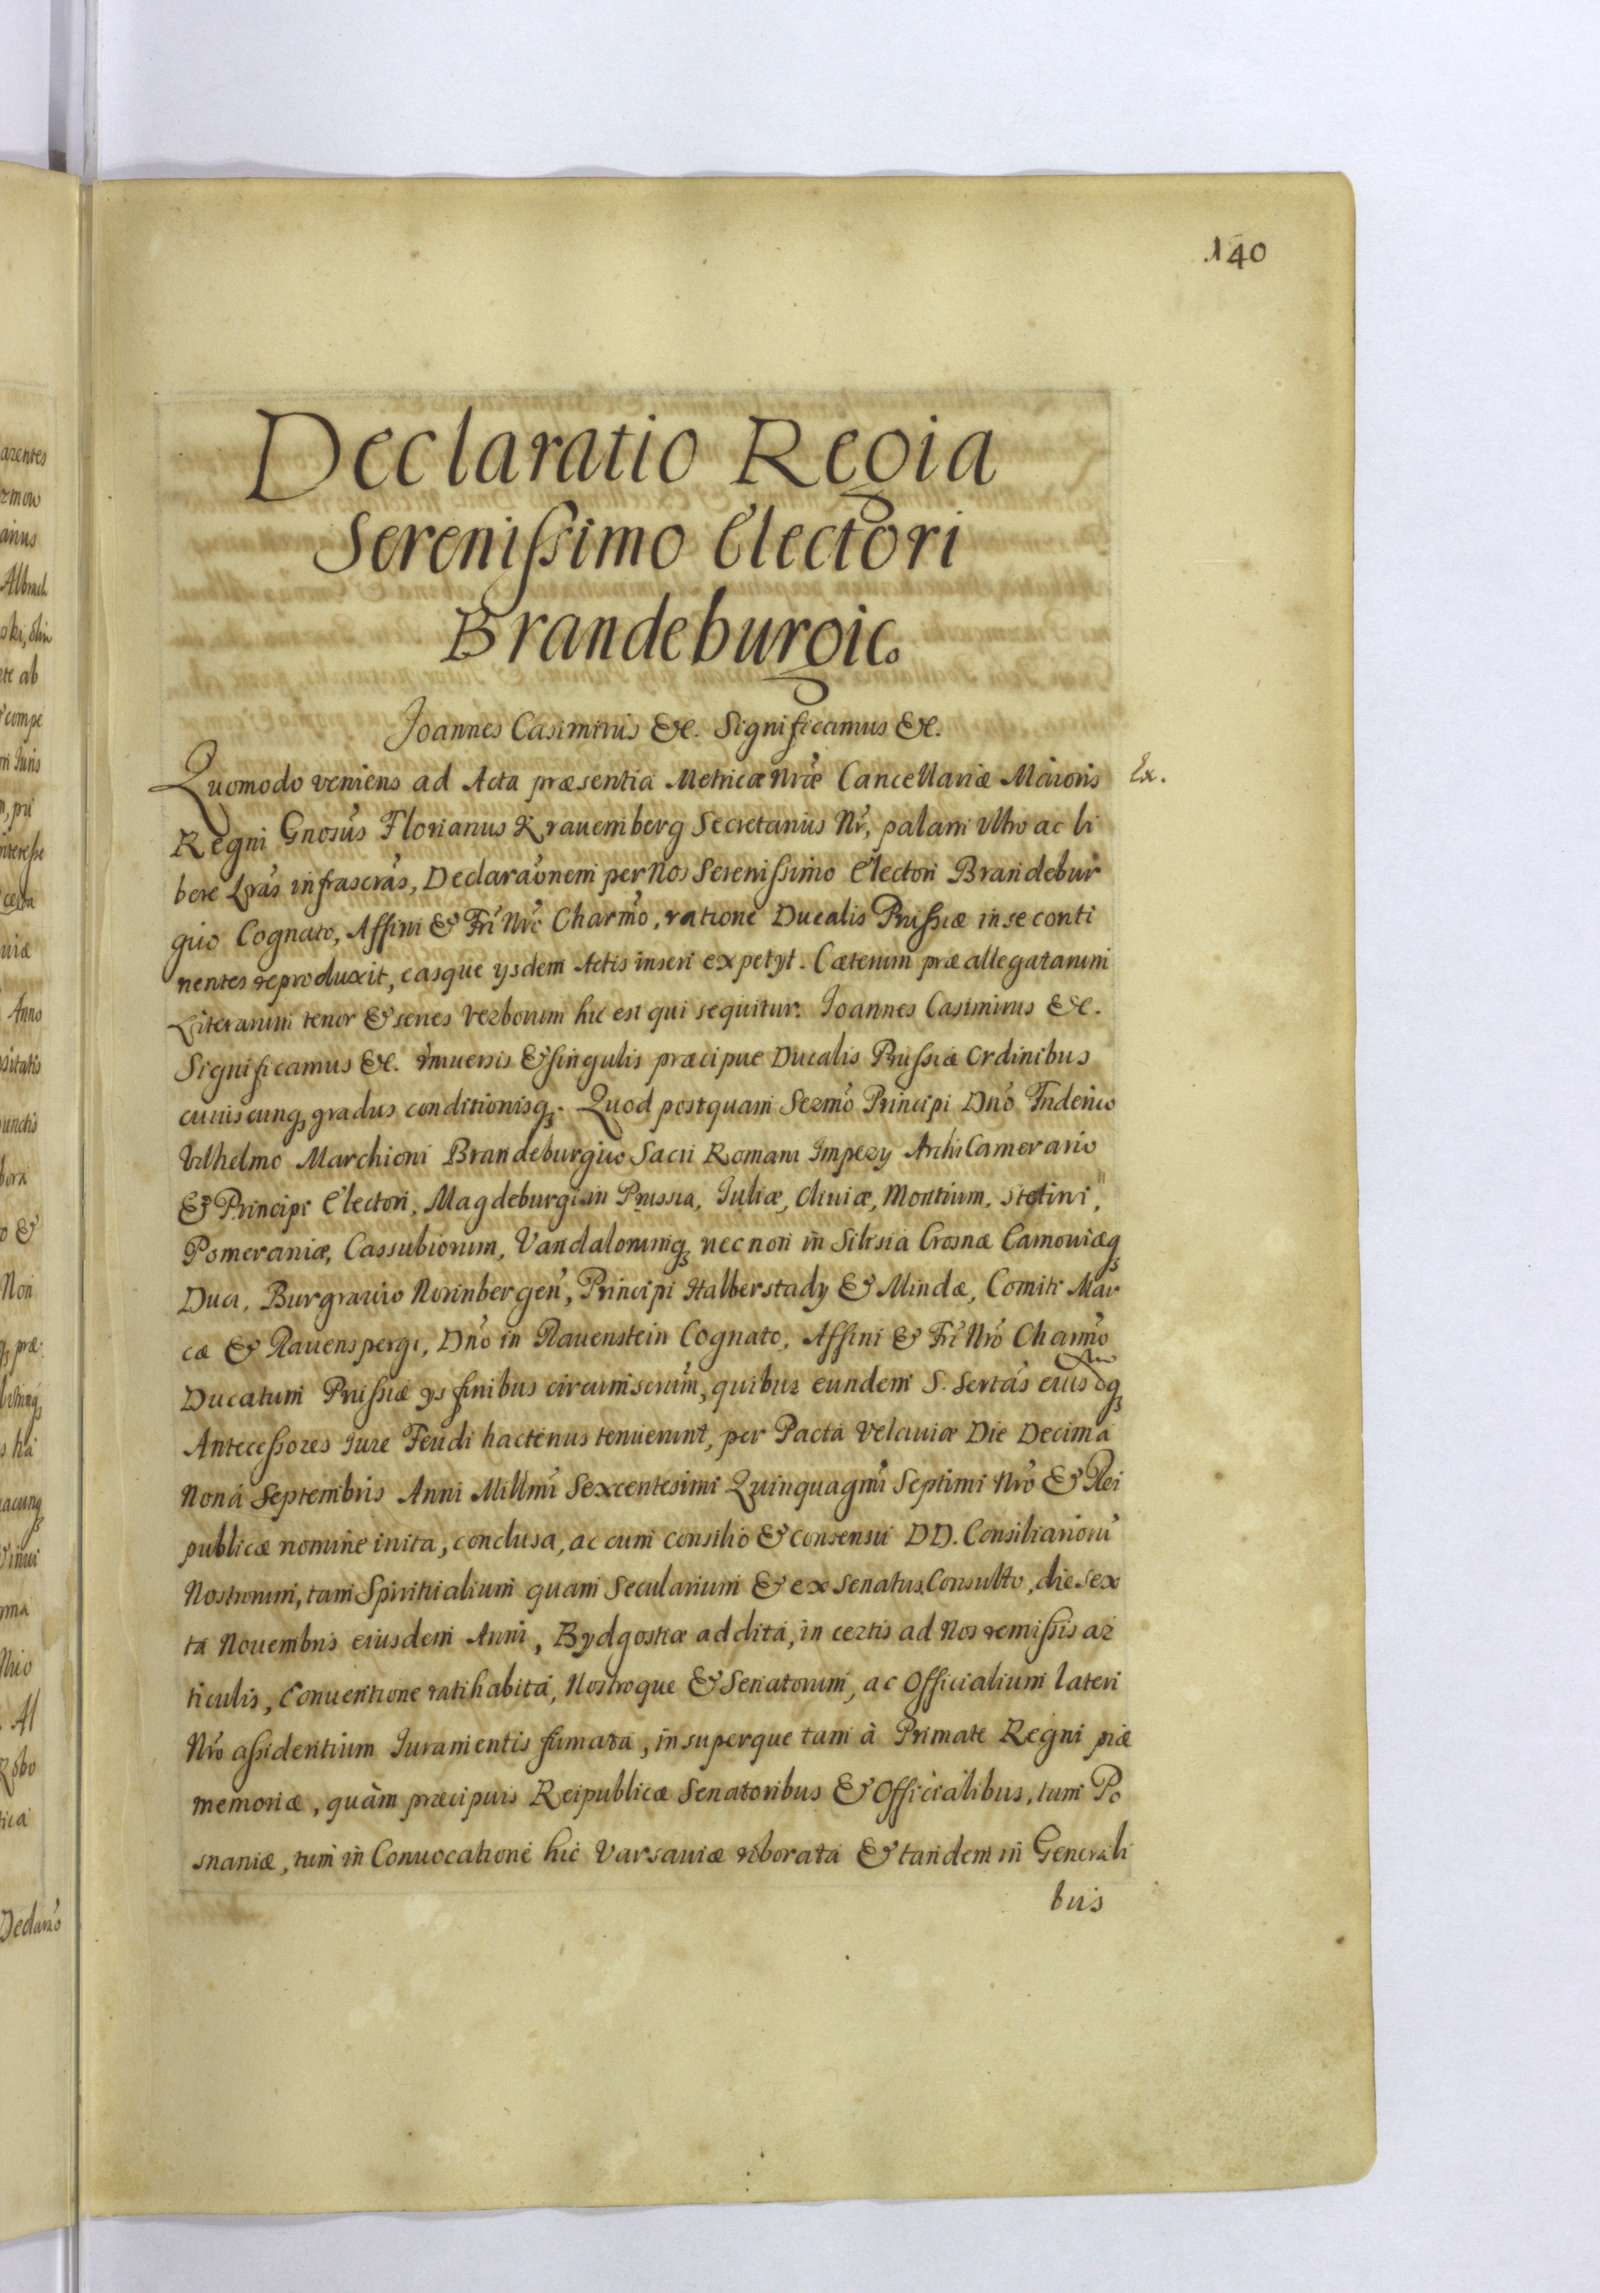 140
Declaratio Regia
Serenissimo Electori
Brandeburgic.
Joannes Casimirus &c. Significamus &c.
Quomodo veniens ad Acta præsentia Metricæ Nræ Cancellariæ Maioris
Ex.
Regni Gnosus Florianus Krauemberg Secretarius Nr, palam Vltro ac li
bere Lras infrascras, Declaraonem per Nos Serenissimo Electori Brandebur
gico Cognato, Affini & Fri Nro Charmo, ratione Ducalis Prussiæ in se conti
nentes reproduxit, easque ysdem Actis inseri expetyt. Cæterum præallegatarum
Literarum tenor & series verborum hic est qui sequitur. Joannes Casimirus &c.
Significamus &c. vniuersis & singulis præcipue Ducalis Prussiæ Ordinibus
cuiuscunq, gradus conditionisq. Quod postquam Sermo Principi Dno Friderico
Vilhelmo Marchioni Brandeburgico Sacri Romani Impery ArchiCamerario
& Principi Electori, Magdeburgi in Prussia, Juliæ, Cliuiæ, Montium, Stetini,
Pomeraniæ, Cassubiorum, Vandalorumq, nec non in Silisia Crosnæ Carnouiæq
Duci, Burgrauio Norinbergen, Principi Halberstady & Mindæ, Comiti Mar
cæ & Rauenspergi, Dno in Rauenstein Cognato, Affini & Fri Nro Charmo
Ducatum Prussiæ ys finibus circumscrium, quibus eundem S. Sertas eius
Antecessores Iure Feudi hactenus tenuerunt, per Pacta Velauiæ Die Decima
Nona Septembris Anni Millmi Sexcentesimi Quinquagmi Septimi Nro & Rei
publicæ nomine inita, conclusa, ac cum consilio & consensu DD. Consiliarioru
Nostrorum, tam Spiritualium quam Secularium & ex Senatus Consulto, die sex
ta Nouembris eiusdem Anni, Bydgostiæ addita, in certis ad Nos remissis ar
ticulis, Conuentione ratihabita, Nostroque & Senatorum, ac Officialium lateri
Nro assidentium Iuramentis firmata, insuperque tam à Primate Regni piæ
memoriæ, quàm præcipuis Reipublicæ Senatoribus & Officialibus, tum Po
snaniæ, tum in Conuocatione hic Varsauiæ roborata & tandem in Generali
bus